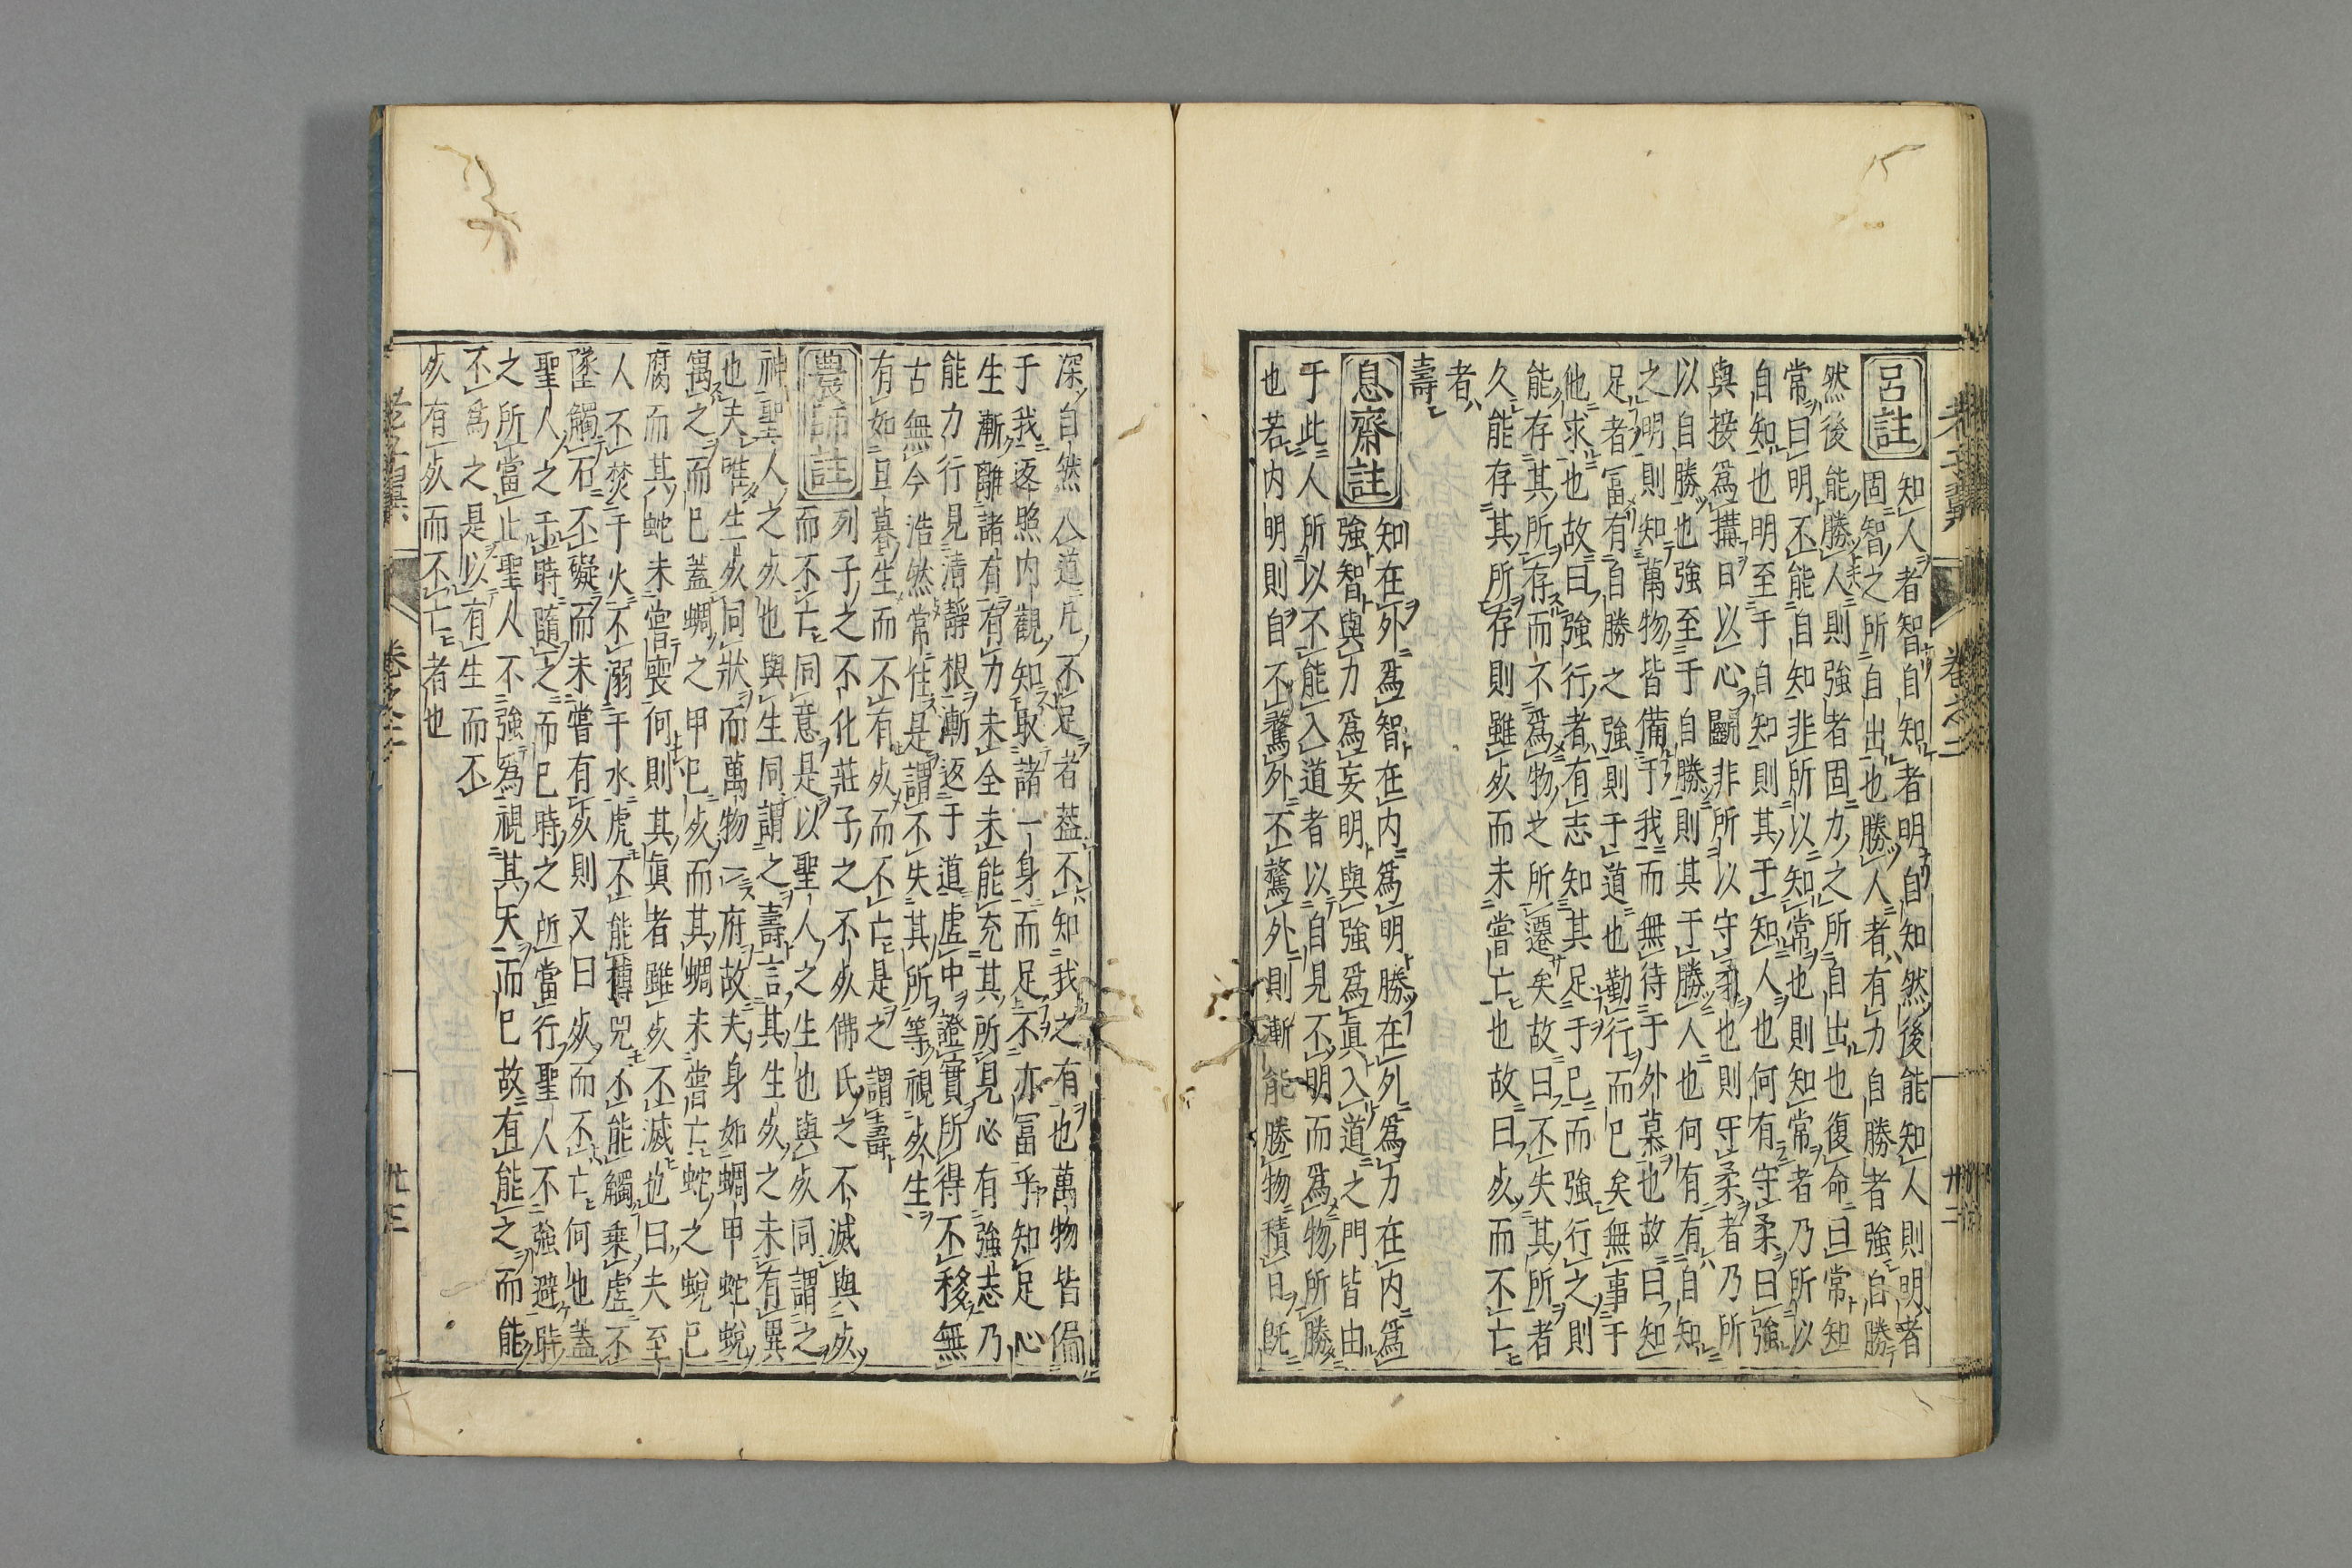 老子翼 卷之二 卅二
呂註
知人者智自知者明自知然後能知人則明者
固智之所自出也勝人者有力自勝者強自勝
然後能勝人則強者固力之所自出也復命曰常知
常曰明不能自知非所以知常也則知常者乃所以
自知也明至于自知則其于知人也何有守柔曰強
與接爲搆日以心鬭非所以守柔也則守柔者乃所
以自勝也強至于自勝則其于勝人也何有有自知
之明則知萬物皆備于我而無待于外慕也故曰知
足者冨有自勝之強則于道也勤行而已矣無事于
他求也故曰強行者有志知其足于已而強行之則
能存其所存而不爲物之所遷矣故曰不失其所者
久能存其所存則雖死而未嘗亡也故曰死而不亡
者
壽
息齋註
知在外爲智在内爲明勝在外爲力在内爲
強智與力爲妄明與強爲眞入道之門皆由
于此人所以不能入道者以自見不明而爲物所勝
也若内明則自不驚外不驚外則漸能勝物積日既
深自然入道凡不足者葢不知我之有也萬物皆偹
于我返照内觀知取諸一身而足不亦冨乎知足心
生漸離諸有有力未全未能充其所見必有強志乃
能力行見清靜根漸返于道虚中證實所得不移無
古無今浩然常住是謂不失其所等視死生
有如旦暮生而不有死而不亡是之謂壽
農師註
列子之不化莊子之不死佛氏之不滅與死
而不亡同意是以聖人之生也與死同謂之
神聖人之死也與生同謂之壽言其生死之未有異
也夫唯生死同狀而萬物一府故夫身如蜩甲蛇蛻
寓之而已蓋蜩之甲已死而其蜩未嘗亡蛇之蛻已
腐而其蛇未嘗喪何則其眞者雖死不滅也曰夫至
人不焚于火不溺于水虎不能摶兕不能觸乗虚不
墜觸石不礙而未嘗有死則又曰死而不亡何也蓋
聖人之于時隨之而已時之所當行聖人不強避時
之所當止聖人不強爲視其天而已故有能之而能
不爲之是以有生而不
死有死而不亡者也
老子翼 卷之二 卅三